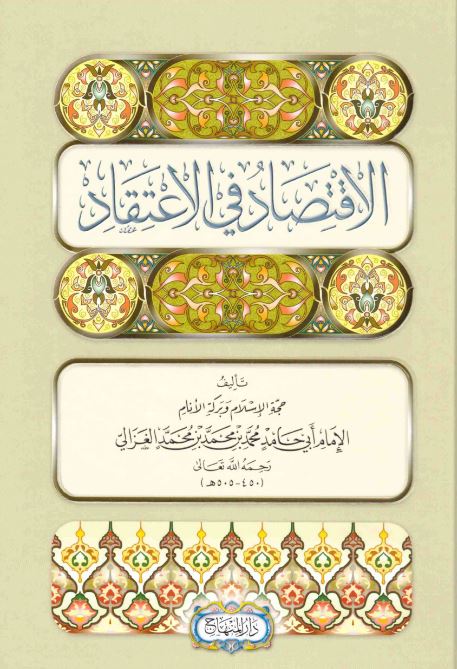 الاقْتِصَادُ فِي الِاعْتِقَادِ
تَأليفُ
حجّة الإِسْلَام وَبَرَكة الأنَام
الإِمَام أَبي حَامِدٍ مُحَمَّد بْن مُحَمَّد بْن مُحَمَّدٍ الغَزَاليّ
رَحِمَهُ اللهُ تَعَالىٰ
(٤٥٠-٥٠٥هـ)
دَارُ المِنْهَاج